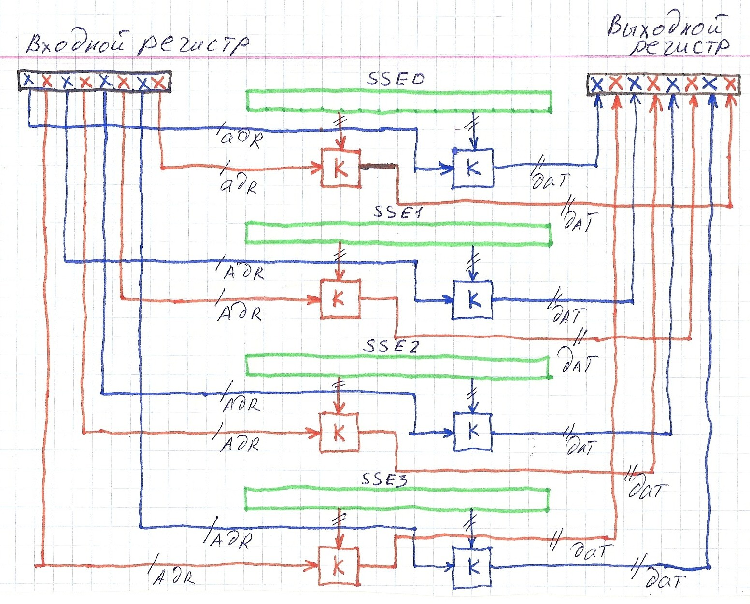 Входной регистр
Выходной
регистр
X X X X X X X X
X X X X X X X X
SSE0
адR
адR
K
K
дат
дAT
SSE1
AдR
AдR
K
K
дAT
дAT
SSE2
AдR
AдR
K
K
дат
дат
SSE3
AдR
AдR
K
K
дат
дат